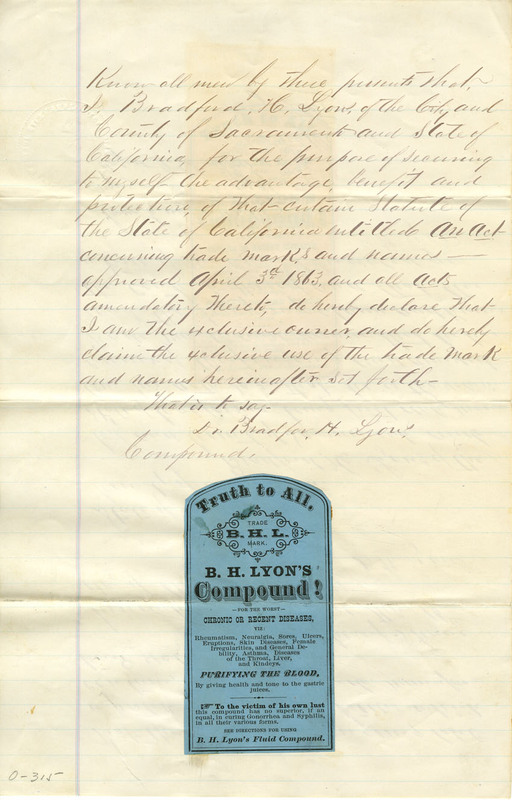 Know all men by these presents that,
I, Bradford, H, Lyon, of the City, and
County of Sacramento and State of
California, for the purpose of securing
to myself the advantage, benefit and
protection, of that certain Statute of
the State of California entitled An Act
concerning trade marks and names —
approved April 3rd 1863, and all Acts
amendatory thereto, do hereby declare that
I am the exclusive owner, and do hereby
claim the exclusive use of the trade mark
and names hereinafter set forth—
That is to say—
Bradfor, H. Lyon,
Compound,
Truth to All.
TRADE
B. H. L.
MARK.
B. H. LYON'S
Compound!
—FOR THE WORST—
CHRONIC OR RECENT DISEASES,
VIZ:
Rheumatism, Neuralgia, Sores, Ulcers,
Eruptions, Skin Diseases, Female
Irregularities, and General De-
bility, Asthma, Diseases
of the Throat, Liver,
and Kindeys.
PURIFYING THE BLOOD,
By giving health and tone to the gastric
juices.
☞ To the victim of his own lust
this compound has no superior, if an
equal, in curing Gonorrhea and Syphilis,
in all their various forms.
SEE DIRECTIONS FOR USING
B. H. Lyon's Fluid Compound.
0-315